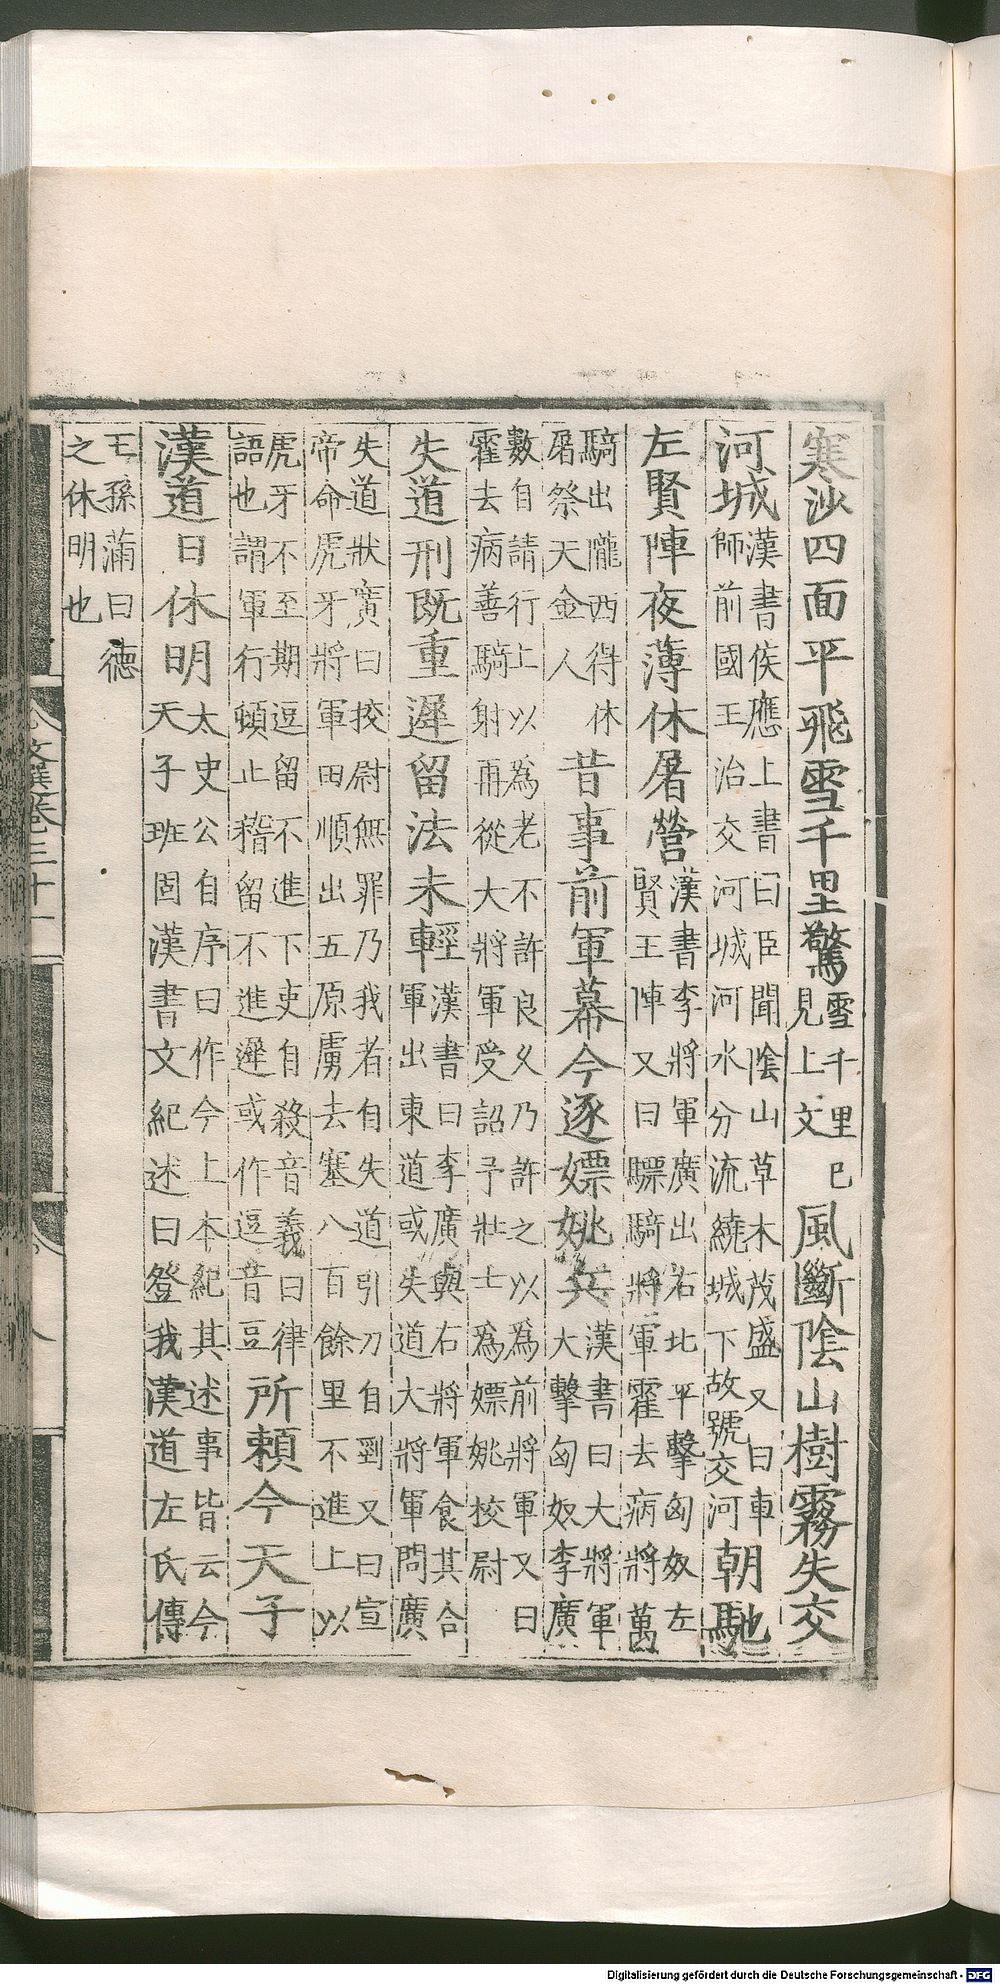 寒沙四面平飛雪千里驚雪千里已見上文風斷陰山樹霧失交
河城漢書侯應上書曰臣聞陰山草木茂盛又曰車師前國王治交河城河水分流繞城下故號交河朝馳
左賢陣夜薄休屠營漢書李將軍廣出右北平擊匈奴左賢王陣又曰驃騎將軍霍去病將萬
騎出隴西得休屠祭天金人昔事前軍幕今逐嫖姚兵漢書曰大將軍大擊匈奴李廣
數自請行上以為老不許良久乃許之以為前將軍又曰霍去病善騎射再從大將軍受詔予壯士為嫖姚校尉
失道刑既重遲留法未輕漢書曰李廣與右將軍食其合軍出東道或失道大將軍問廣
失道狀廣曰挍尉無罪乃我者自失道引刀自剄又曰宣帝命虎牙將軍田順出五原虜去塞八百餘里不進上以
虎牙不至期逗留不進下吏自殺音義曰律語也謂軍行頓止稽留不進遲或作逗音豆所賴今天子
漢道日休明太史公自序曰作今上本紀其述事皆云今天子班固漢書文紀述曰登我漢道左氏傳
王孫滿曰德之休明也
文選卷三十一
八
Digitalisierung gefördert durch die Deutsche Forschungsgemeinschaft - DFG